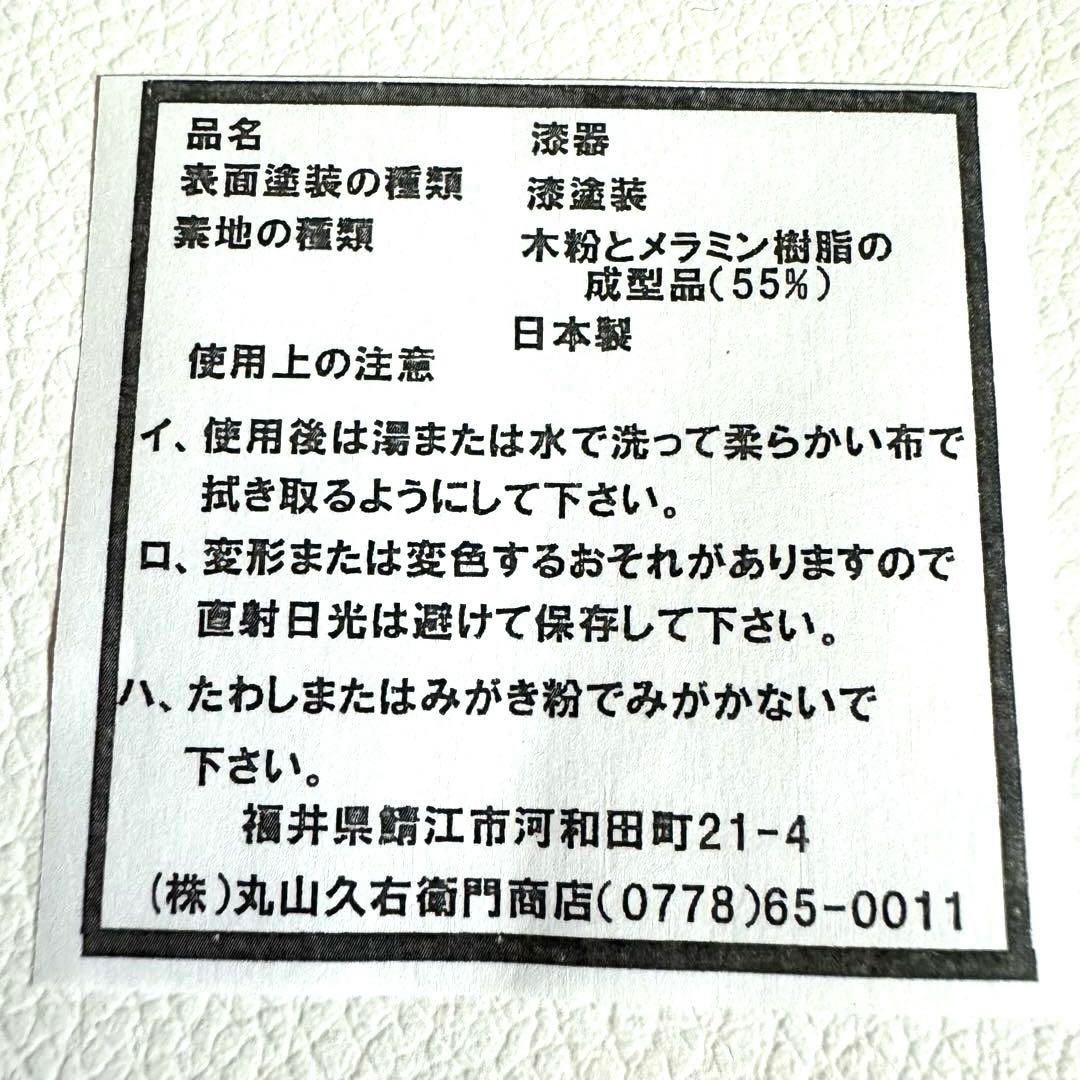 品名 漆器
表面塗装の種類 漆塗装
素地の種類 木粉とメラミン樹脂の
成型品(55%)
日本製
使用上の注意
イ、使用後は湯または水で洗って柔らかい布で
拭き取るようにして下さい。
ロ、変形または変色するおそれがありますので
直射日光は避けて保存して下さい。
ハ、たわしまたはみがき粉でみがかないで
下さい。
福井県鯖江市河和田町21-4
(株)丸山久右衛門商店(0778)65-0011